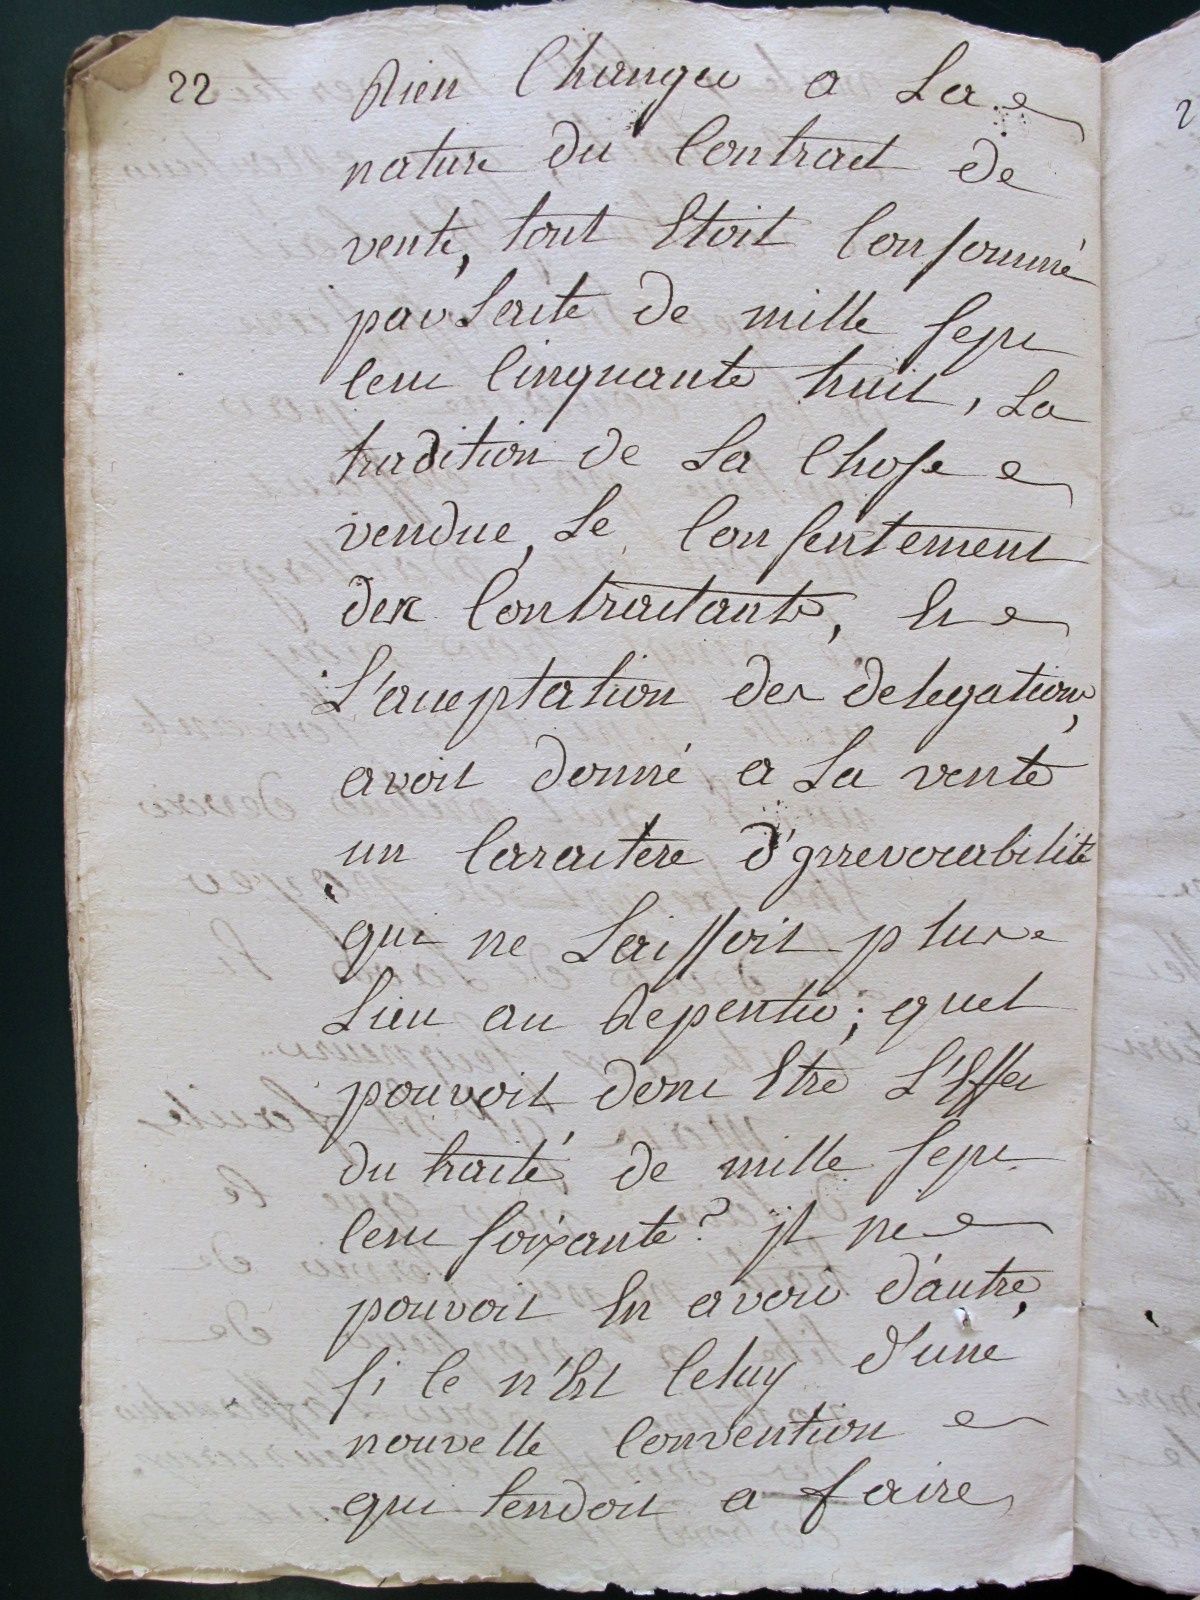 22
Rien Changer a La
nature du Contract de
vente, tout Etoit Consommé
par Lacte de mille sept
Cent Cinquante huit, La
tradition de La Chose
vendue, Le Consentement
des Contractants, Et
L'acceptation des delegations,
avoit donné a La vente
un Caractere d'yrrevocabilité
qui ne Laissoit plus
Lieu au Repentir; quel
pouvoit donc Etre L'Effet
du traité de mille sept
Cent soixante? il ne
pouvoit En avoir d'autre,
si ce n'Est Celuy d'une
nouvelle Convention
qui tendoit a faire